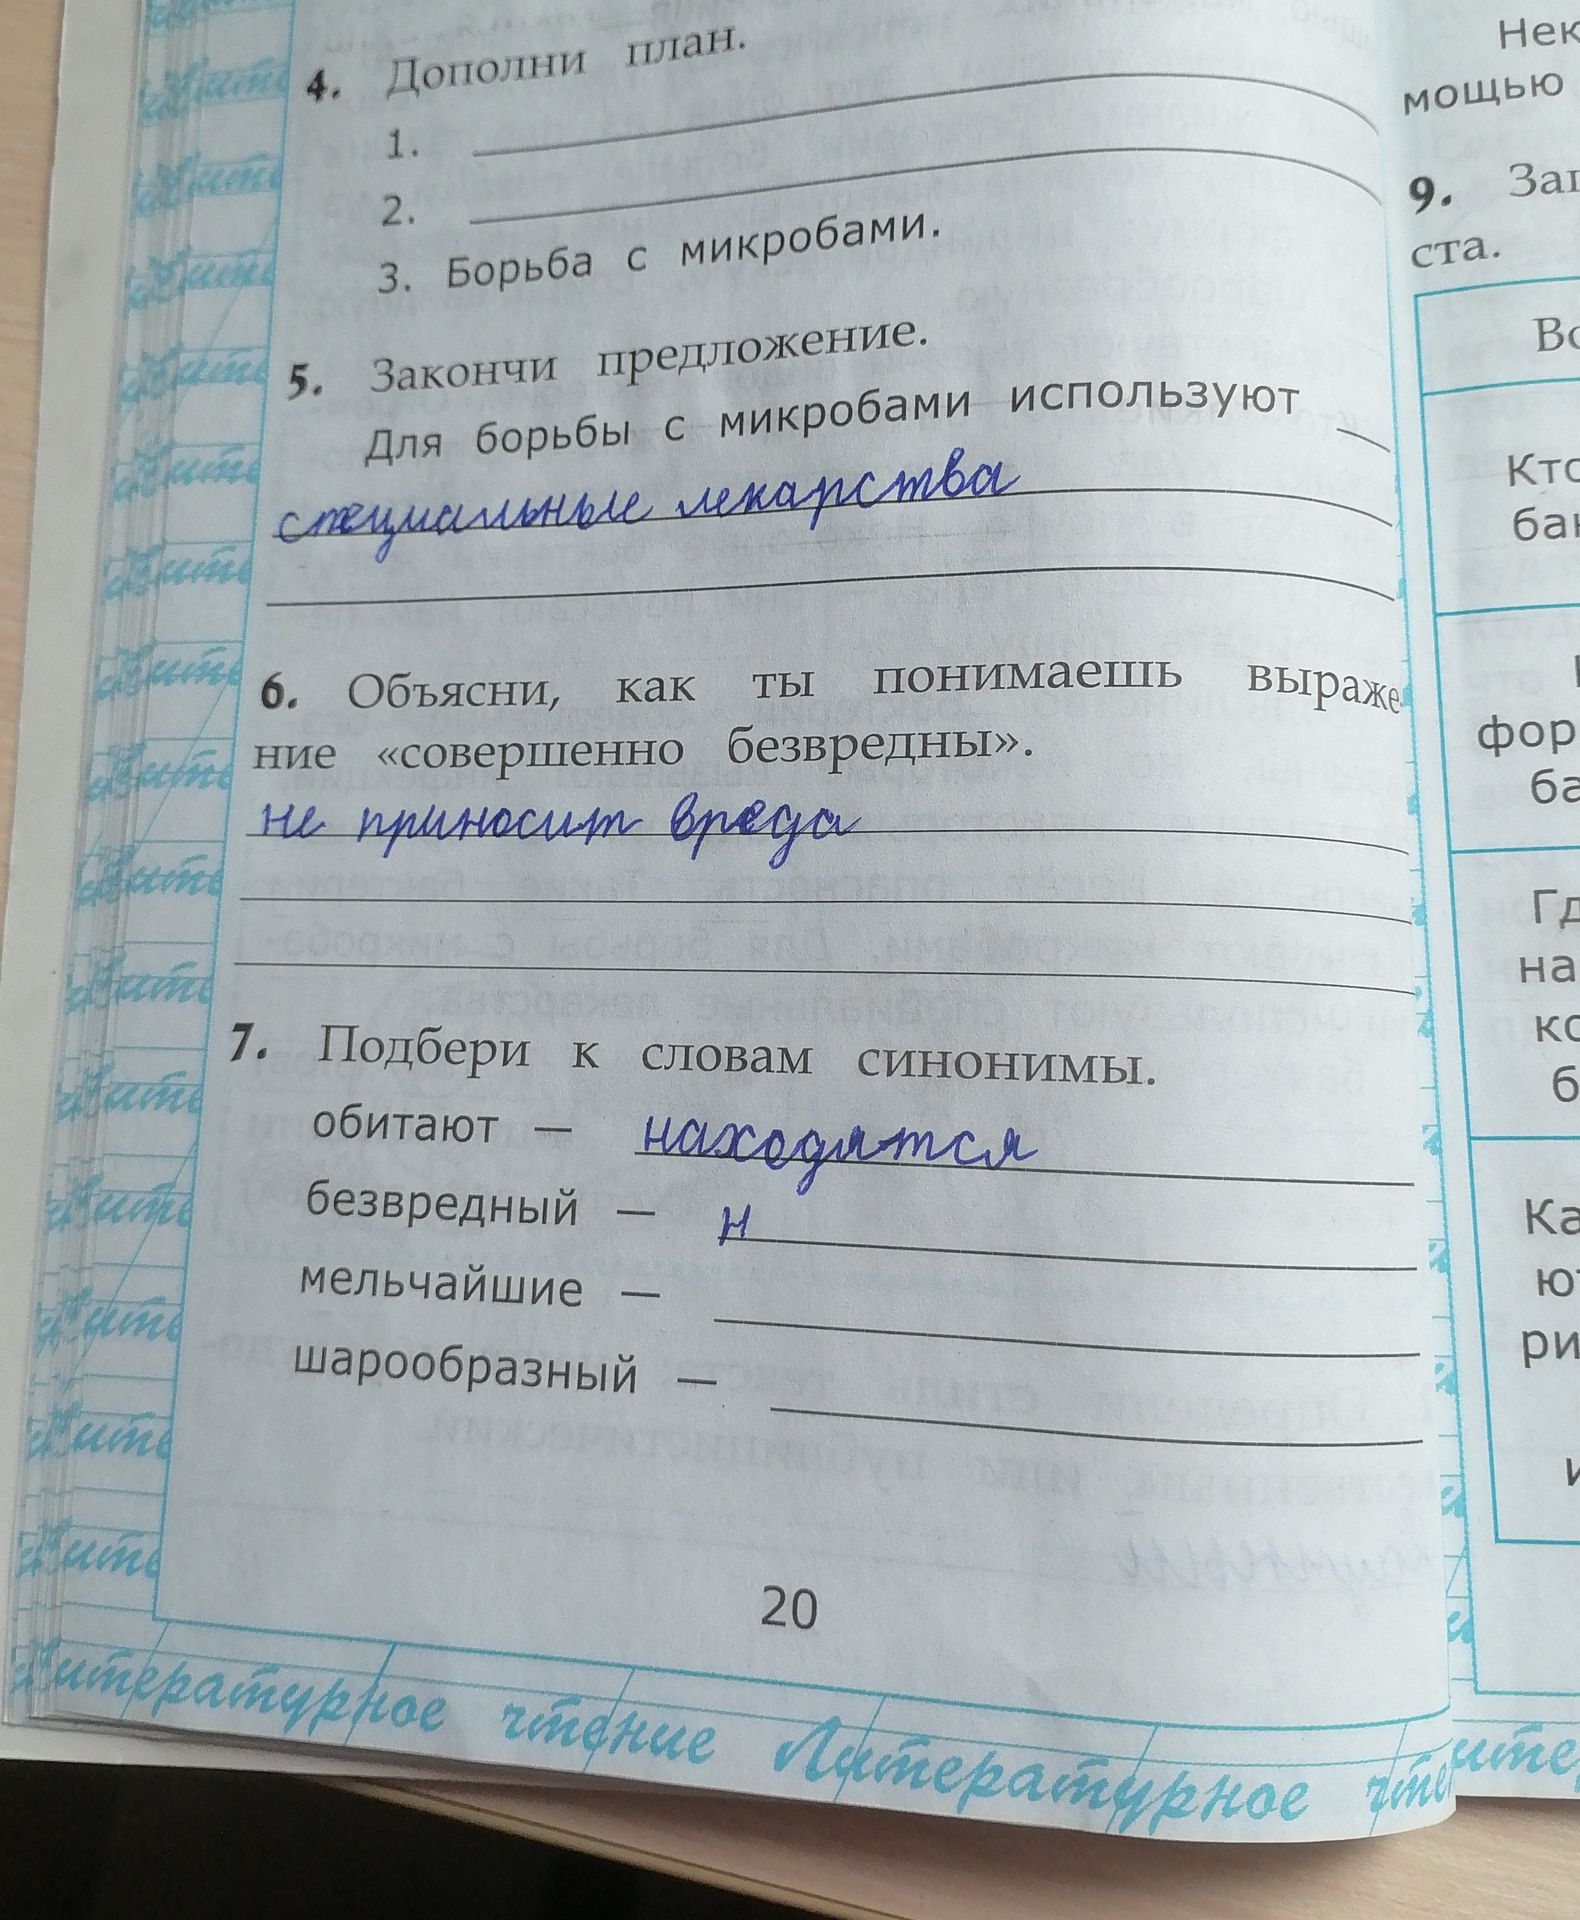 4. Дополни план.
1.
2.
3. Борьба с микробами.
5. Закончи предложение.
Для борьбы с микробами используют
специальные лекарства
6. Объясни, как ты понимаешь выраже-
ние «совершенно безвредны».
не приносит вреда
7. Подбери к словам синонимы.
обитают — находятся
безвредный — н
мельчайшие —
шарообразный —
20
Литературное чтение Литературное чте
Нек
мощью
9.
ста.
Кто
фор
Гд
на
Ка